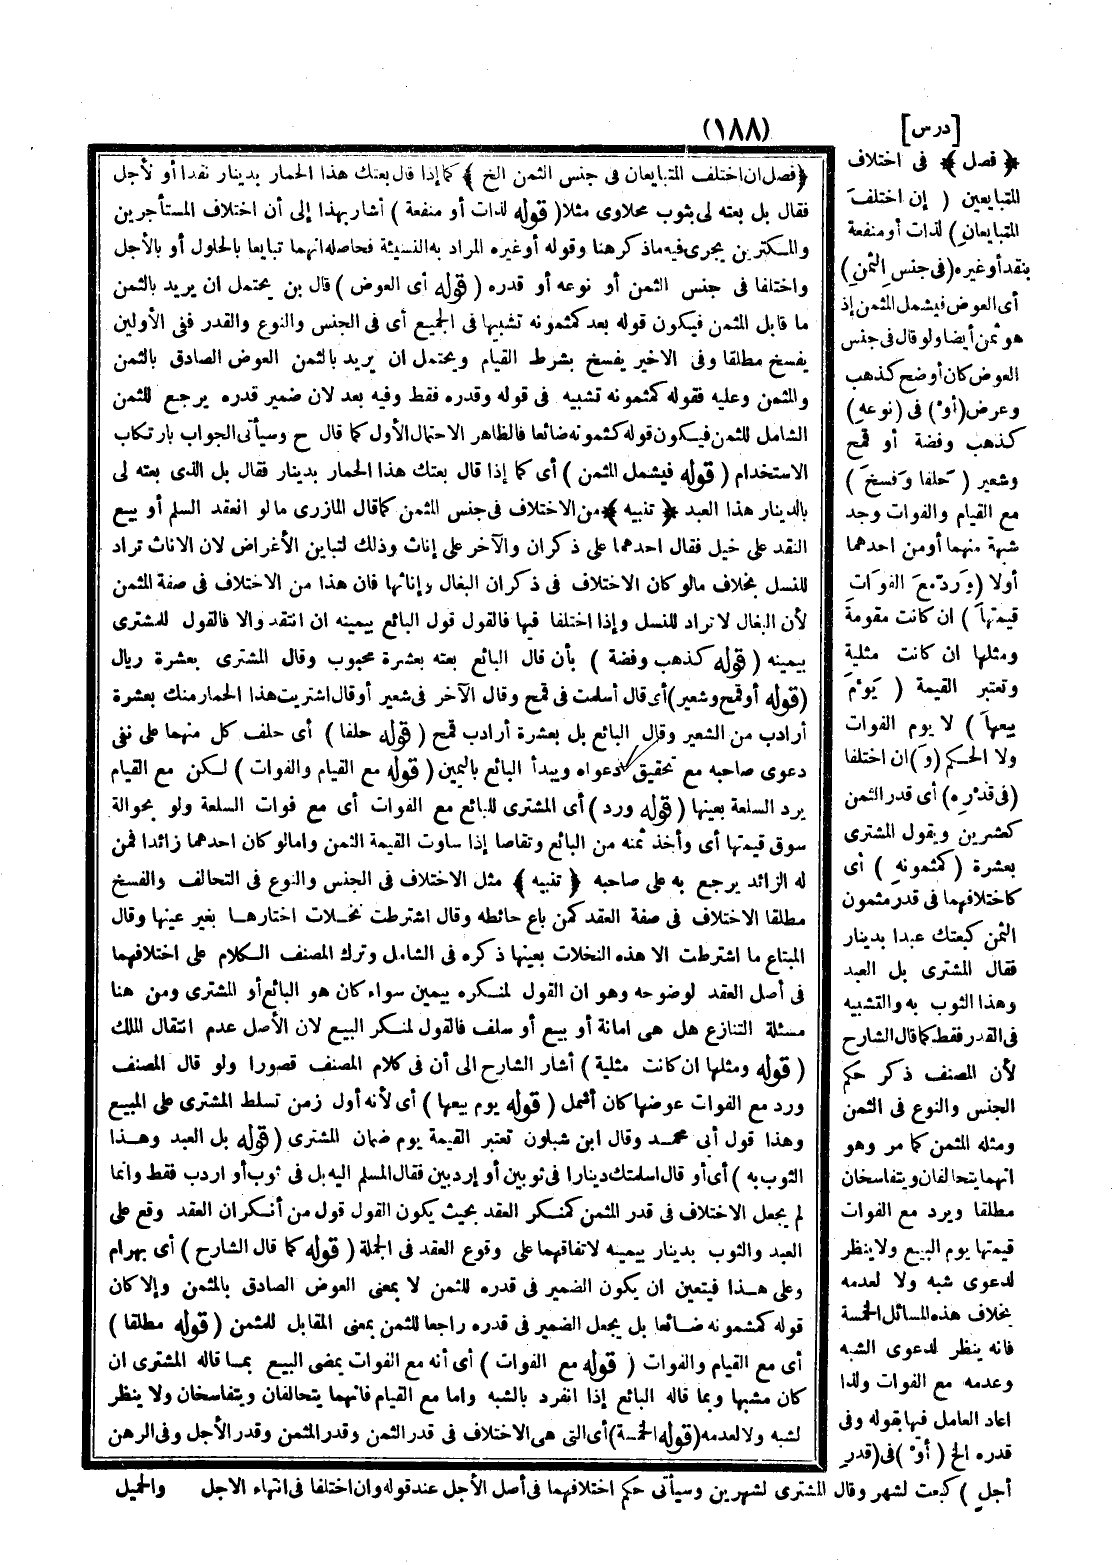 [درس]
(١٨٨)
﴿ فصل ﴾ فى اختلاف
المتبايعين ( إن اختلفَ
المتبايعانِ ) لذات أو منفعة
بنقد أو غيره (فى جنسِ الثمنِ)
أى العوض فيشمل المثمن إذ
هو ثمن أيضا ولو قال فى جنس
العوض كان أوضح كذهب
وعرض (أوْ) فى (نوعهِ)
كذهب وفضة أو قمح
وشعير ( حَلفا وَفسخَ )
مع القيام والفوات وجد
شبهة منهما أو من احدهما
أولا (وَردّ معَ الفوَاتِ
قيمتهَا ) ان كانت مقومة
ومثلها ان كانت مثلية
وتعتبر القيمة ( يَوْمَ
بيعهاَ ) لا يوم الفوات
ولا الحكم (وَ) ان اختلفا
(فى قدْرِه) أى قدر الثمن
كعشرين ويقول المشترى
بعشرة (كمثمونهِ ) أى
كاختلافهما فى قدر مثمون
الثمن كبعتك عبدا بدينار
فقال المشترى بل العبد
وهذا الثوب به والتشبيه
فى القدر فقط كما قال الشارح
لأن المصنف ذكر حكم
الجنس والنوع فى الثمن
ومثله المثمن كما مر وهو
انهما يتحالفان ويتفاسخان
مطلقا ويرد مع الفوات
قيمتها يوم البيع ولا ينظر
لدعوى شبه ولا لعدمه
بخلاف هذه المسائل الخمسة
فانه ينظر لدعوى الشبه
وعدمه مع الفوات ولذا
اعاد العامل فيها بقوله وفى
قدره الخ ( أوْ )فى(قدر
أجلٍ ) كبعت لشهر وقال المشترى لشهرين وسيأتى حكم اختلافهما فى أصل الأجل عند قوله وان اختلفا فى انتهاء الاجل والحميل
﴿فصل ان اختلف المتبايعان فى جنس الثمن الخ﴾ كما إذا قال بعتك هذا الحمار بدينار نقدا أو لأجل
فقال بل بعته لى بثوب محلاوى مثلا (قوله لذات أو منفعة ) أشار بهذا إلى أن اختلاف المستأجرين
والمكترين يجرى فيه ماذكر هنا وقوله أو غيره المراد به النسيئة فحاصله انهما تبايعا بالحلول أو بالأجل
واختلفا فى جنس الثمن أو نوعه أو قدره ( قوله أى العوض ) قال بن يحتمل ان يريد بالثمن
ما قابل المثمن فيكون قوله بعد كمثمونه تشبيها فى الجميع أى فى الجنس والنوع والقدر ففى الأولين
يفسخ مطلقا وفى الاخير يفسخ بشرط القيام ويحتمل ان يريد بالثمن العوض الصادق بالثمن
والمثمن وعليه فقوله كمثمونه تشبيه فى قوله وقدره فقط وفيه بعد لان ضمير قدره يرجع للثمن
الشامل للثمن فيكون قوله كمثمونه ضائعا فالظاهر الاحتمال الأول كما قال ح وسيأتى الجواب بارتكاب
الاستخدام ( قوله فيشمل المثمن ) أى كما إذا قال بعتك هذا الحمار بدينار فقال بل الذى بعته لى
بالدينار هذا العبد ﴿ تنبيه ﴾ من الاختلاف فى جنس المثمن كما قال المازرى ما لو انعقد السلم أو بيع
النقد على خيل فقال احدهما على ذكران والآخر على إناث وذلك لتباين الأغراض لان الاناث تراد
للنسل بخلاف مالو كان الاختلاف فى ذكران البغال وإناثها فان هذا من الاختلاف فى صفة المثمن
لأن البغال لا تراد للنسل وإذا اختلفا فيها فالقول قول البائع بيمينه ان انتقد والا فالقول للمشترى
بيمينه ( قوله كذهب وفضة ) بأن قال البائع بعته بعشرة محبوب وقال المشترى بعشرة ريال
(قوله أو قمح وشعير) أى قال أسلمت فى قمح وقال الآخر فى شعير أو قال اشتريت هذا الحمار منك بعشرة
أرادب من الشعير وقال البائع بل بعشرة أرادب قمح ( قوله حلفا ) أى حلف كل منهما على نفى
دعوى صاحبه مع تحقيق دعواه ويبدأ البائع باليمين (قوله مع القيام والفوات ) لكن مع القيام
يرد السلعة بعينها (قوله ورد) أى المشترى للبائع مع الفوات أى مع فوات السلعة ولو بحوالة
سوق قيمتها أى وأخذ ثمنه من البائع وتقاصا إذا ساوت القيمة الثمن وامالو كان احدهما زائدا فمن
له الزائد يرجع به على صاحبه ﴿ تنبيه ﴾ مثل الاختلاف فى الجنس والنوع فى التحالف والفسخ
مطلقا الاختلاف فى صفة العقد كمن باع حائطه وقال اشترطت نخلات اختارها بغير عينها وقال
المبتاع ما اشترطت الا هذه النخلات بعينها ذكره فى الشامل وترك المصنف الكلام على اختلافهما
فى أصل العقد لوضوحه وهو ان القول لمنكره بيمين سواء كان هو البائع أو المشترى ومن هنا
مسئلة التنازع هل هى امانة أو بيع أو سلف فالقول لمنكر البيع لان الأصل عدم انتقال الملك
( قوله ومثلها ان كانت مثلية ) أشار الشارح الى أن فى كلام المصنف قصورا ولو قال المصنف
ورد مع الفوات عوضها كان أشمل ( قوله يوم بيعها ) أى لأنه أول زمن تسلط المشترى على المبيع
وهذا قول أبى محمد وقال ابن شبلون تعتبر القيمة يوم ضمان المشترى ( قوله بل العبد وهذا
الثوب به ) أى أو قال اسلمتك دينارا فى ثوبين أو إردبين فقال المسلم اليه بل فى ثوب أو اردب فقط وانما
لم يجعل الاختلاف فى قدر المثمن كمنكر العقد بحيث يكون القول قول من أنكر ان العقد وقع على
العبد والثوب بدينار بيمينه لاتفاقهما على وقوع العقد فى الجملة ( قوله كما قال الشارح ) أى بهرام
وعلى هذا فيتعين ان يكون الضمير فى قدره للثمن لا بمعنى العوض الصادق بالمثمن وإلا كان
قوله كمثمونه ضائعا بل يجعل الضمير فى قدره راجعا للثمن بمعنى المقابل للمثمن ( قوله مطلقا )
أى مع القيام والفوات ( قوله مع الفوات ) أى أنه مع الفوات يمضى البيع بما قاله المشترى ان
كان مشبها وبما قاله البائع إذا انفرد بالشبه واما مع القيام فانهما يتحالفان ويتفاسخان ولا ينظر
لشبه ولا لعدمه (قوله الخمسة) أى التى هى الاختلاف فى قدر الثمن وقدر المثمن وقدر الأجل وفى الرهن